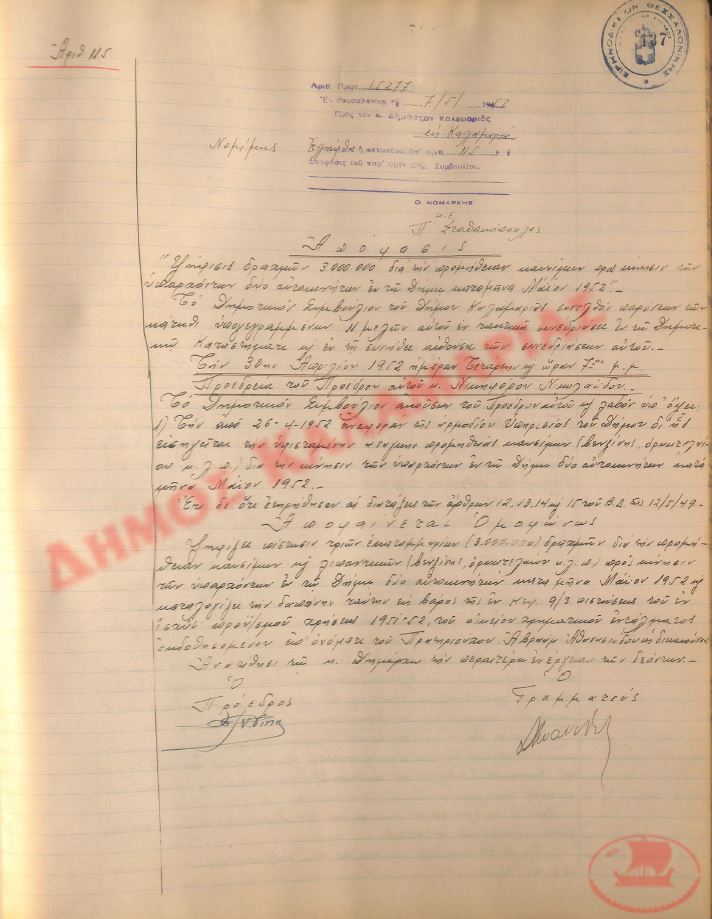 ΕΙΡΗΝΟΔΙΚΕΙΟΝ ΘΕΣΣΑΛΟΝΙΚΗΣ
137
Ἀριθ. 115
Αριθ. Πρωτ. 15277
Ἐν Θεσσαλονίκῃ τῇ 7/5/1952
Πρὸς τὸν κ. Δήμαρχον Καλαμαριᾶς
εἰς Καλαμαριὰ
Νομίμως Ἐλήφθη ἡ κατωτέρω ὑπ' ἀριθ. 115
ἀπόφασις τοῦ παρ' ὑμῖν Δημ. Συμβουλίου.
Ο ΝΟΜΑΡΧΗΣ
Π. Σταθακόπουλος
Ἀπόφασις
"Ψήφισις δραχμῶν 3.000.000 διὰ τὴν προμήθειαν καυσίμων πρὸς κίνησιν τῶν
ὑπαρχόντων δύο αὐτοκινήτων ἐν τῷ Δήμῳ κατὰ μῆνα Μάϊον 1952".
Τὸ Δημοτικὸν Συμβούλιον τοῦ Δήμου Καλαμαριᾶς συνελθὸν παρόντων τῶν
κάτωθι ὑπογεγραμμένων 11 μελῶν αὐτοῦ ἐν τακτικῇ συνεδριάσει ἐν τῷ Δημοτι-
κῷ Καταστήματι κ ἐν τῇ συνήθει αἰθούσῃ τῶν συνεδριάσεων αὐτοῦ.-
Τὴν 30ην Ἀπριλίου 1952 ἡμέραν Τετάρτην κ ὥραν 7ην μ.μ
Προεδρείᾳ τοῦ Προέδρου αὐτοῦ κ. Νικηφόρου Νικολαΐδου.-
Τὸ Δημοτικὸν Συμβούλιον ἀκοῦσαν τοῦ Προέδρου αὐτοῦ κ λαβὸν ὑπ' ὄψει:
1) Τὴν ἀπὸ 26-4-1952 ἀναφορὰν τῆς ἁρμοδίου Ὑπηρεσίας τοῦ Δήμου δι' ἧς
εἰσηγεῖται τὴν ὑφισταμένην ἀνάγκην προμηθείας καυσίμων (βενζίνης, ὀρυκτελαί-
ου κ.λ.π) διὰ τὴν κίνησιν τῶν ὑπαρχόντων ἐν τῷ Δήμῳ δύο αὐτοκινήτων κατὰ
μῆνα Μάϊον 1952.-
Ἔτι δὲ ὅτι ἐτηρήθησαν αἱ διατάξεις τῶν ἄρθρων 12, 13, 14 κ 15 τοῦ Β.Δ τῆς 12/5/49.-
Ἀποφαίνεται Ὁμοφώνως
Ψηφίζει πίστωσιν τριῶν ἑκατομμυρίων (3.000.000) δραχμῶν διὰ τὴν προμή-
θειαν καυσίμων κ λιπαντικῶν (βενζίνης, ὀρυκτελαίων κ.λ.π) πρὸς κίνησιν
τῶν ὑπαρχόντων ἐν τῷ Δήμῳ δύο αὐτοκινήτων κατὰ μῆνα Μάϊον 1952 κ
καταλογίζει τὴν δαπάνην ταύτην εἰς βάρος τῆς ἐν Κεφ. 9/3 πιστώσεως τοῦ ἐν
ἰσχύϊ προϋπ/σμοῦ χρήσεως 1951-52, τοῦ οἰκείου χρηματικοῦ ἐντάλματος
ἐκδοθησομένου ἐπ' ὀνόματι τοῦ Πρατηριούχου Ἀβραὰμ
Ἀνατίθησι τῷ κ. Δημάρχῳ τὴν περαιτέρω ἐνέργειαν τῶν δεόντων.-
Ὁ
Πρόεδρος
Ὁ
Γραμματεύς
ΔΗΜΟΣ ΚΑΛΑΜΑΡΙΑΣ